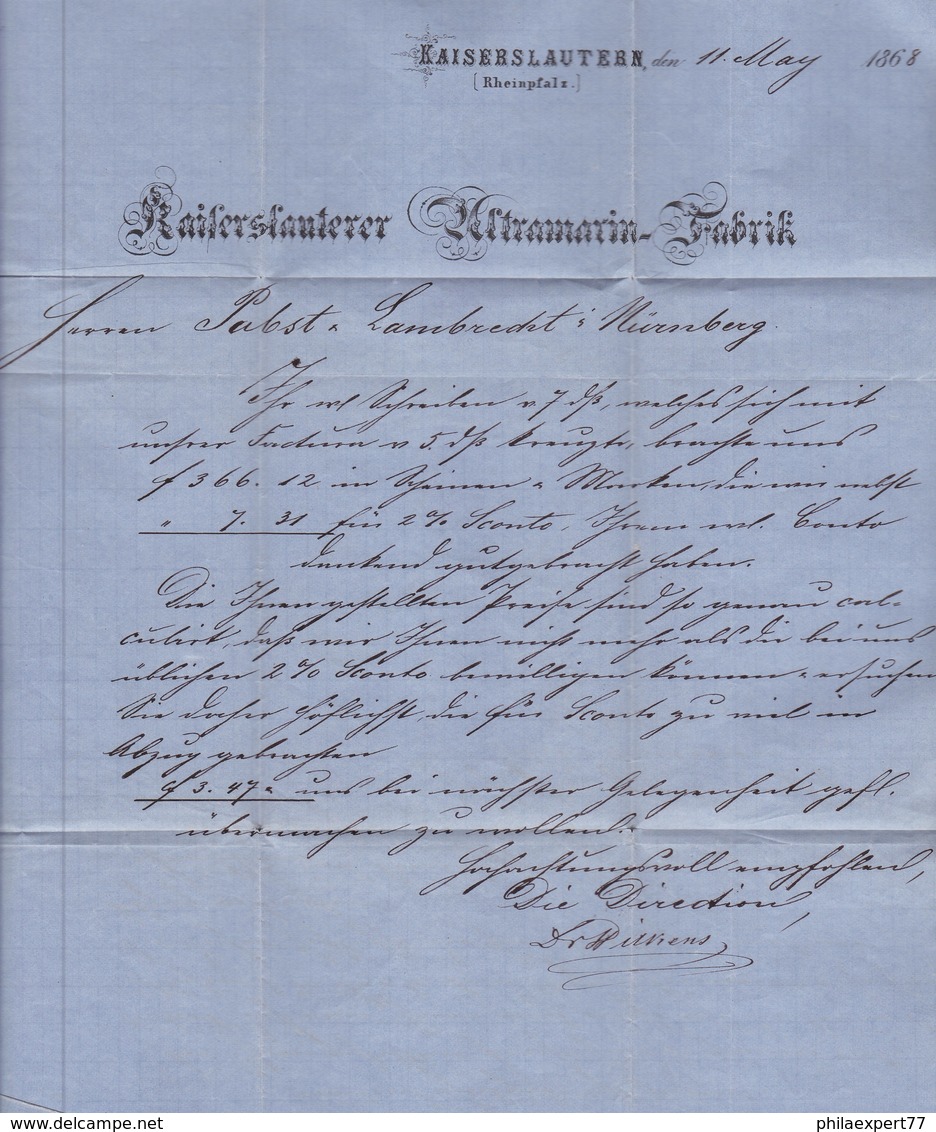 KAISERSLAUTERN, den 11. May 1868
(Rheinpfalz.)
Kaiserslauterer Ultramarin-Fabrik
Herren Pabst & Lambrecht i/ Nürnberg.
Ihr wl Schreiben v 7 dß, welches sich mit
unsrer Factura v 5. dß kreuzte, brachte uns
f 366. 12 in Scheinen & Marken, die wir nebst
" 7. 31 für 2 % Sconto, Ihrem wl. Conto
dankend gutgebracht haben.
Die Ihnen gestellten Preise sind so genau cal-
culirt, daß wir Ihnen nicht mehr als die bei uns
üblichen 2 % Sconto bewilligen können & ersuchen
Sie daher höflichst, die für Sconto zu viel in
Abzug gebrachten
f 3. 47 uns bei nächster Gelegenheit gefl.
übermachen zu wollen.
Hochachtungsvoll empfohlen,
Die Direction,
Dr Wilkens
delcampe.net
philaexpert77